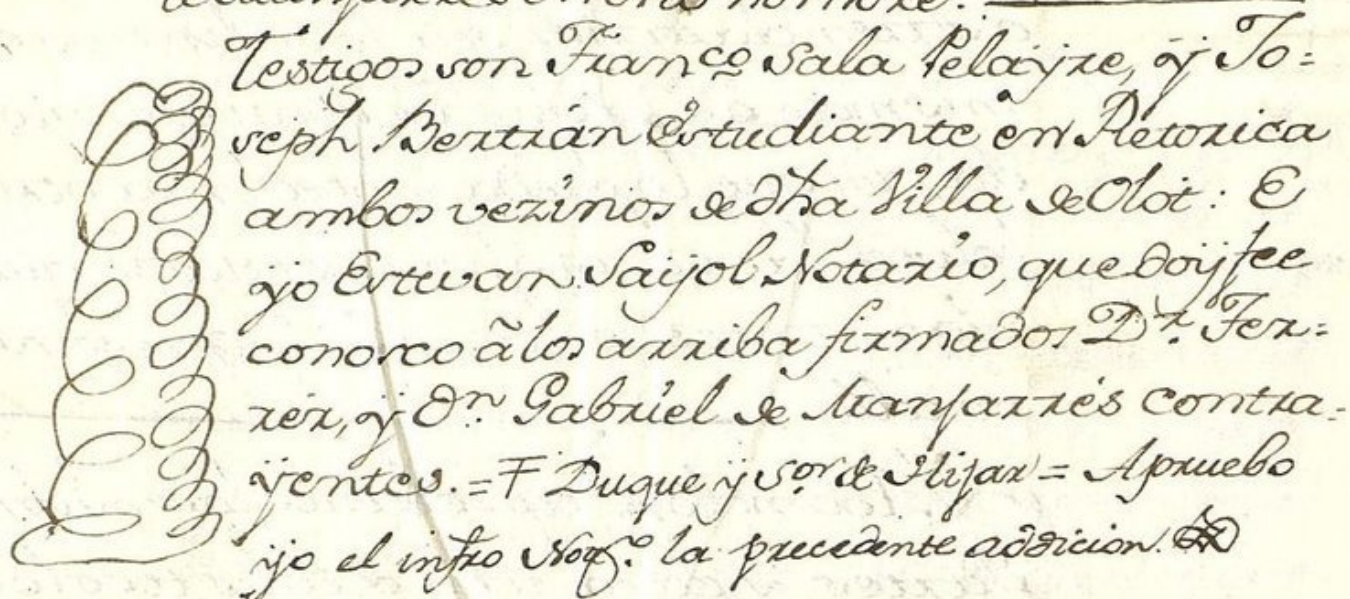 en dho nombre.
Testigos son Fran.co Sala Pelayre, y Jo=
seph Bertrán Estudiante en Retorica
ambos vezinos de dha Villa de Olot: E
yo Estevan Saijol Notario, que doy fee
conosco â los arriba firmados D.r Fer=
rér, y d.n Gabriel de Manjarrés contra-
yentes. = Ŧ Duque y s.or de Hijar = Apruebo
yo el infro Not.o la precedente addicion.